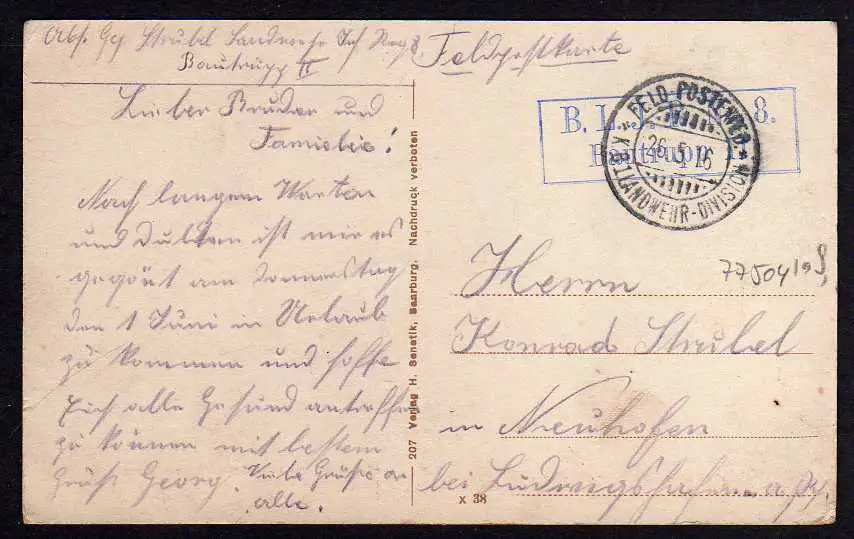 Abs. Gg. Strubel Landwehr Inf Reg 8
Bautrupp II
Feldpostkarte
Lieber Bruder und
Familie!
Nach langem Warten
und Dulden ist mir es
gegönt am Donnerstag
den 1 Juni in Urlaub
zu kommen und hoffe
Euch alle Gesund antreffen
zu können mit bestem
Gruß Georg. Viele Grüße an
alle.
B. L. J. 8.
Bautrupp
FELD-POSTEXPED
26 5 16
K.B. LANDWEHR-DIVISION
Herrn
Konrad Strubel
in Neuhofen
bei Ludwigshafen a. Rh.
77504
207 Verlag H. Senetik, Saarburg. Nachdruck verboten
x 38